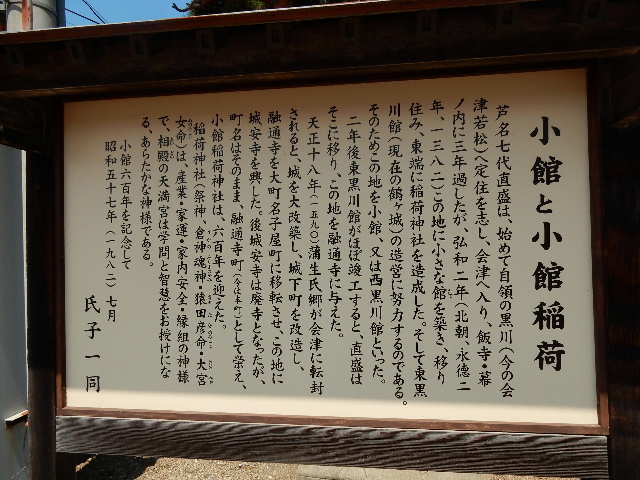 小館と小館稲荷
芦名七代直盛は、始めて自領の黒川(今の会
津若松)へ定住を志し、会津へ入り、飯寺・幕
ノ内に三年過したが、弘和二年(北朝、永徳二
年、一三八二)この地に小さな館を築き、移り
住み、東端に稲荷神社を造成した。そして東黒
川館(現在の鶴ヶ城)の造営に努力するのである。
そのためこの地を小館、又は西黒川館といった。
二年後東黒川館がほぼ竣工すると、直盛は
そこに移り、この地を融通寺に与えた。
天正十八年(一五九〇)蒲生氏郷が会津に転封
されると、城を大改築し、城下町を改造し、
融通寺を大町名子屋町に移転させ、この地に
城安寺を興した。後城安寺は廃寺となったが、
町名はそのまま、融通寺町(今は本町)として栄え、
小館稲荷神社は、六百年を迎えた。
稲荷神社(祭神、倉神魂神・猿田彦命・大宮
女命)は、産業・家運・家内安全・縁組の神様
で、相殿の天満宮は学問と智慧をお授けにな
る、あらたかな神様である。
小館六百年を記念して
昭和五十七年(一九八二)七月
氏子一同